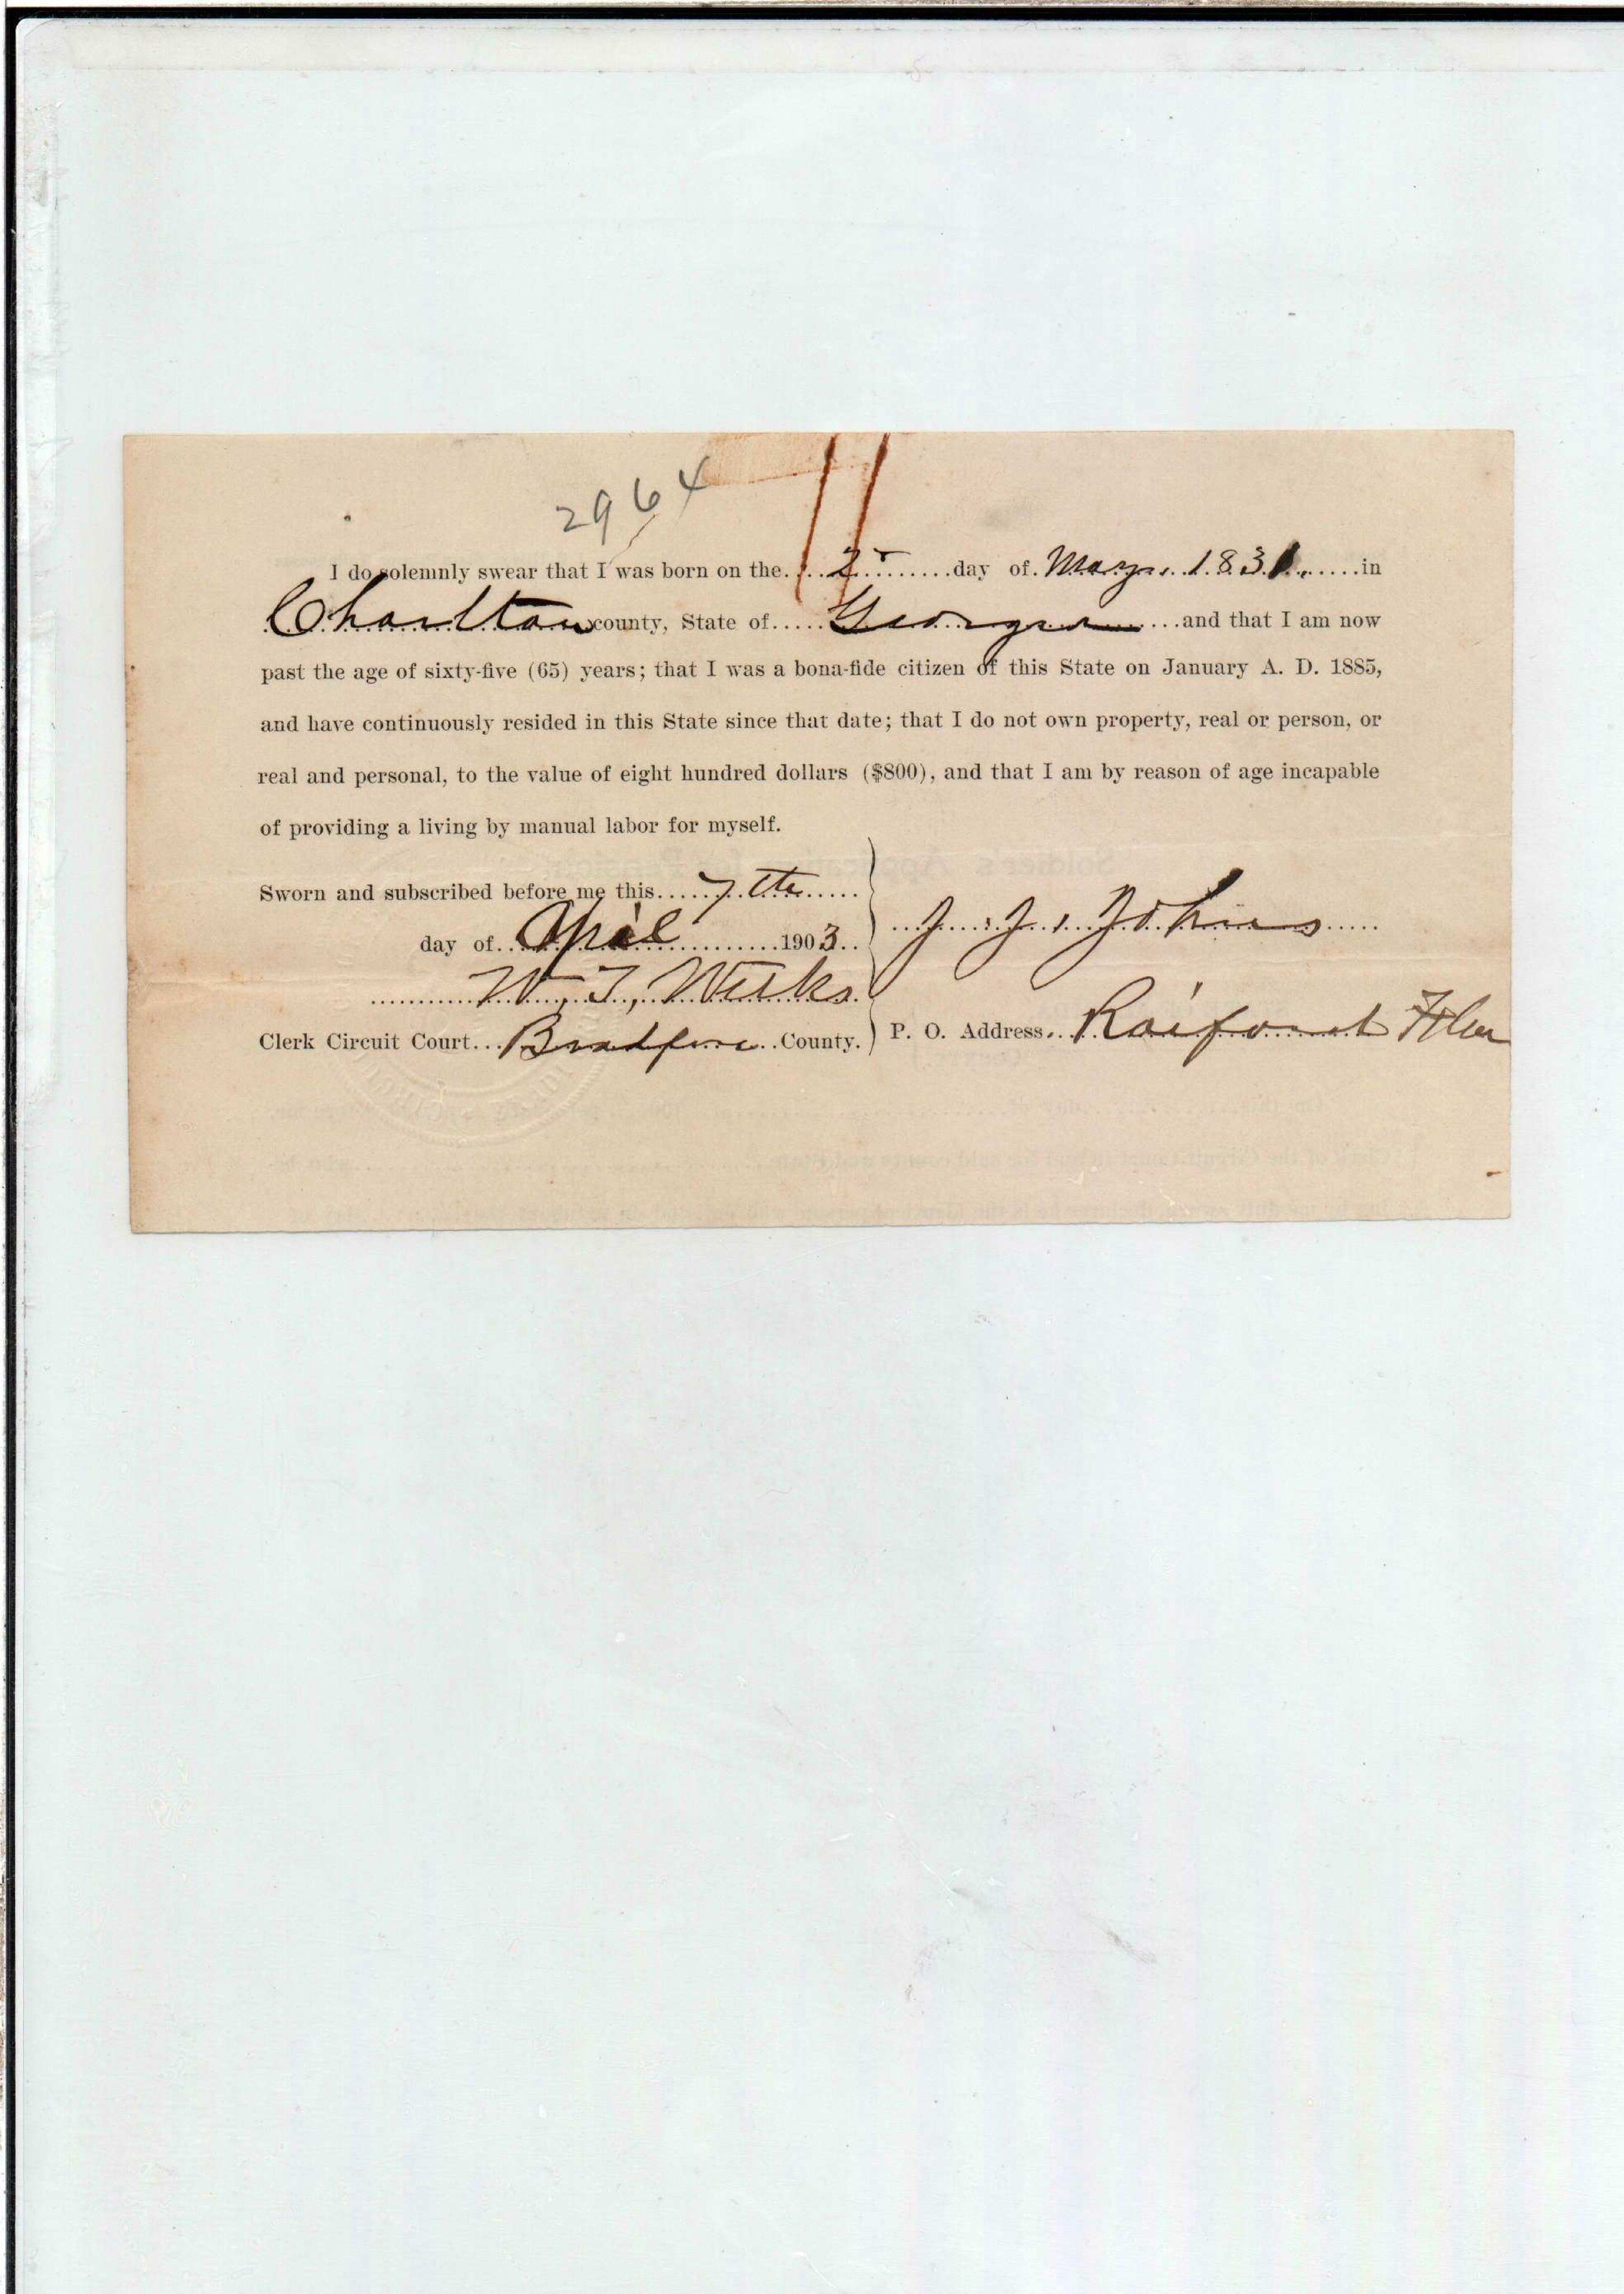 2964
I do solemnly swear that I was born on the 2 day of May 1831 in
Charlton county, State of Georgia and that I am now
past the age of sixty-five (65) years; that I was a bona-fide citizen of this State on January A. D. 1885,
and have continuously resided in this State since that date; that I do not own property, real or person, or
real and personal, to the value of eight hundred dollars ($800), and that I am by reason of age incapable
of providing a living by manual labor for myself.
Sworn and subscribed before me this 7th
day of April 1903 J. J. Johns
W. T. Weeks
Clerk Circuit Court Bradford County. P. O. Address Raiford Fla